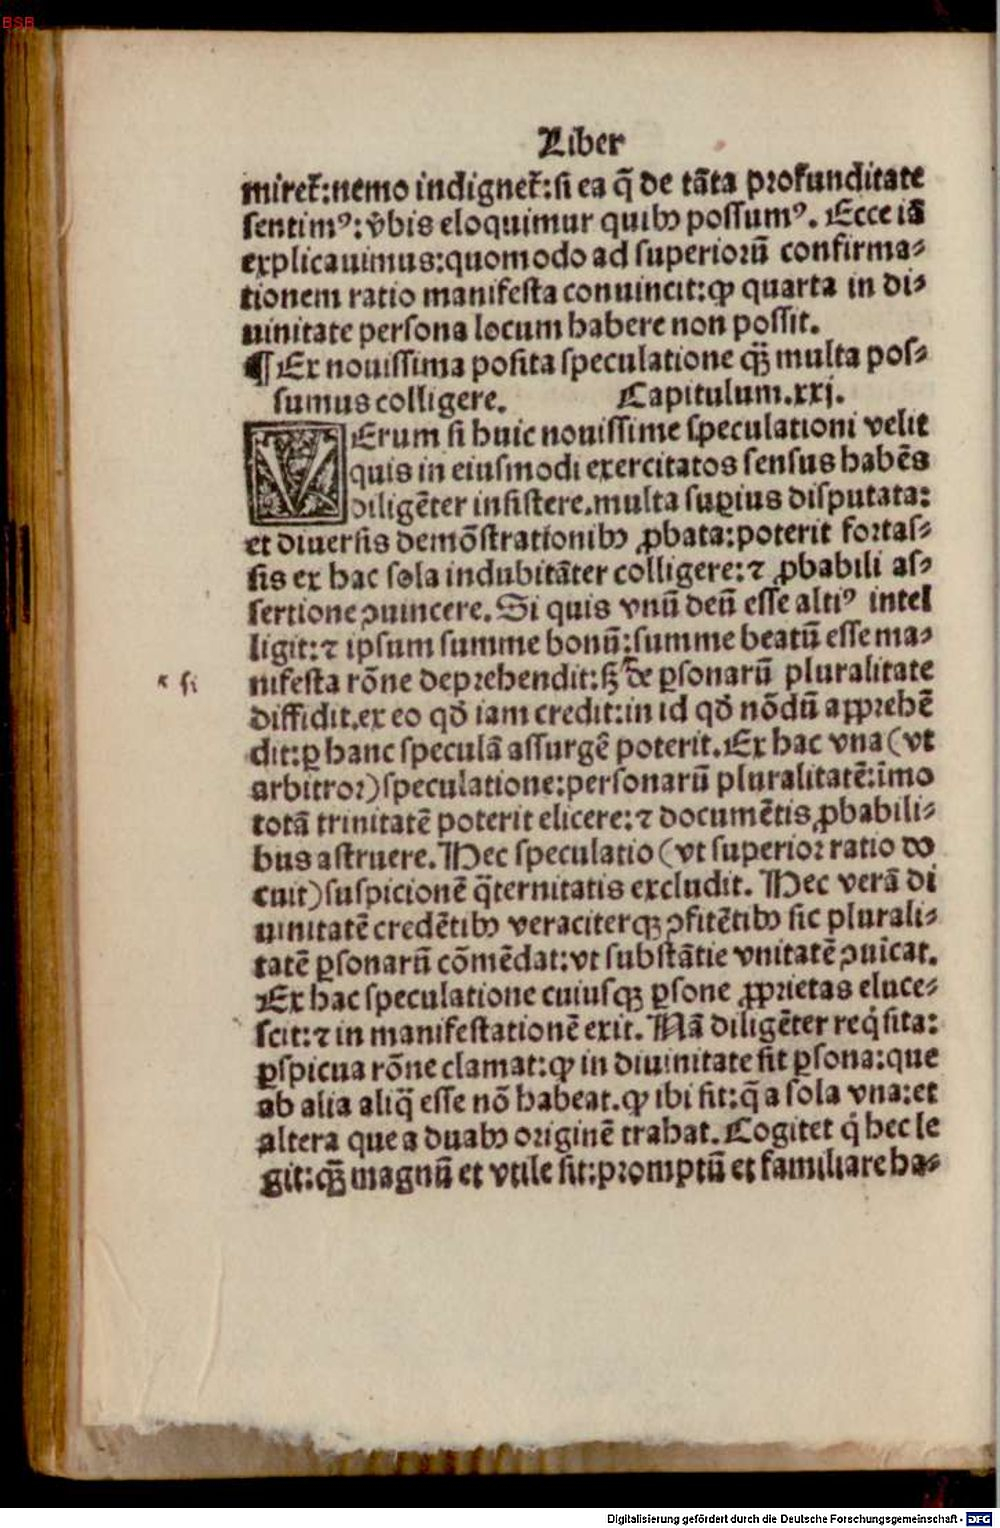 BSB
Liber
miret᷑:nemo indignet᷑:si ea q̄ de tāta profunditate
sentimꝰ:v̄bis eloquimur quibꝰ possumꝰ. Ecce iā
explicauimus:quomodo ad superiorū confirma⸗
tionem ratio manifesta conuincit:ꝙ quarta in di⸗
uinitate persona locum habere non possit.
¶ Ex nouissima posita speculatione q̄ꝫ multa pos⸗
sumus colligere. Capitulum.xxj.
VErum si huic nouissime speculationi velit
quis in eiusmodi exercitatos sensus habēs
diligēter insistere.multa suꝑius disputata:
et diuersis demōstrationibꝰ ꝓbata:poterit fortas⸗
sis ex hac sola indubitāter colligere:⁊ ꝓbabili as⸗
sertione ꝯuincere. Si quis vnū deū esse altiꝰ intel
ligit:⁊ ipsum summe bonū:summe beatū esse ma⸗
nifesta rōne deprehendit:sꝫ de ꝑsonarū pluralitate
⁊ si
diffidit.ex eo qd̄ iam credit:in id qd̄ nōdū apprehē
dit:ꝑ hanc speculā assurgē poterit. Ex hac vna (vt
arbitror) speculatione:personarū pluralitatē:īmo
totā trinitatē poterit elicere:⁊ documētis ꝓbabili⸗
bus astruere. Hec speculatio (vt superior ratio do
cuit) suspicionē q̄ternitatis excludit. Hec verā di
uinitatē credētibꝰ veraciterqꝫ ꝯfitētibꝰ sic plurali⸗
tatē ꝑsonarū cōmēdat:vt substātie vnitatē ꝯuīcat.
Ex hac speculatione cuiusqꝫ ꝑsone ꝓprietas eluce⸗
scit:⁊ in manifestationē exit. Nā diligēter req̇sita:
ꝑspicua rōne clamat:ꝙ in diuinitate sit ꝑsona:que
ab alia aliq̄ esse nō habeat.ꝙ ibi sit:q̄ a sola vna:et
altera que a duabꝰ originē trahat. Cogitet q̇ hec le
git:q̄ꝫ magnū et vtile sit:promptū et familiare ha⸗
Digitalisierung gefördert durch die Deutsche Forschungsgemeinschaft - DFG